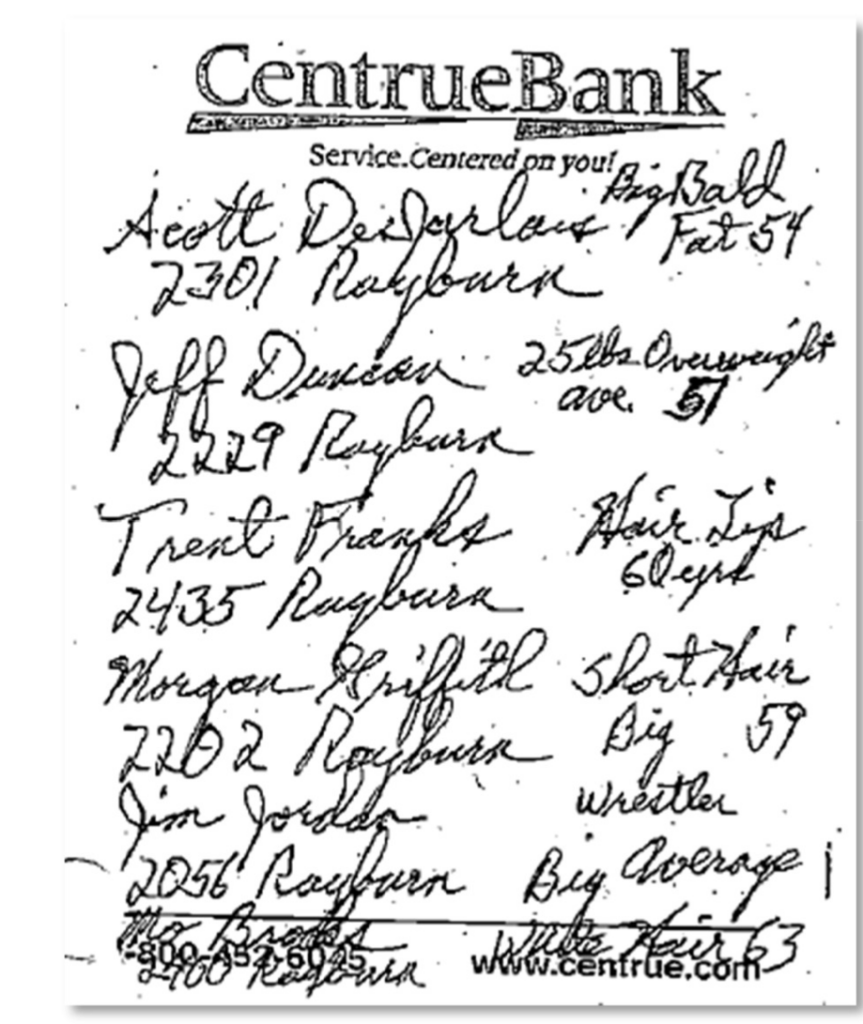 CentrueBank
Service.Centered on you!
Scott DesJarlais Big Bald
Fat 54
2301 Rayburn
Jeff Duncan 25 lbs Overweight
ave. 51
2229 Rayburn
Trent Franks Hair Lip
60 yrs
2435 Rayburn
Morgan Griffith Short Hair
2202 Rayburn Big 59
Jim Jordan Wrestler
2056 Rayburn Big Average
Mo Brooks White Hair 63
2400 Rayburn
-800-452-6045 www.centrue.com